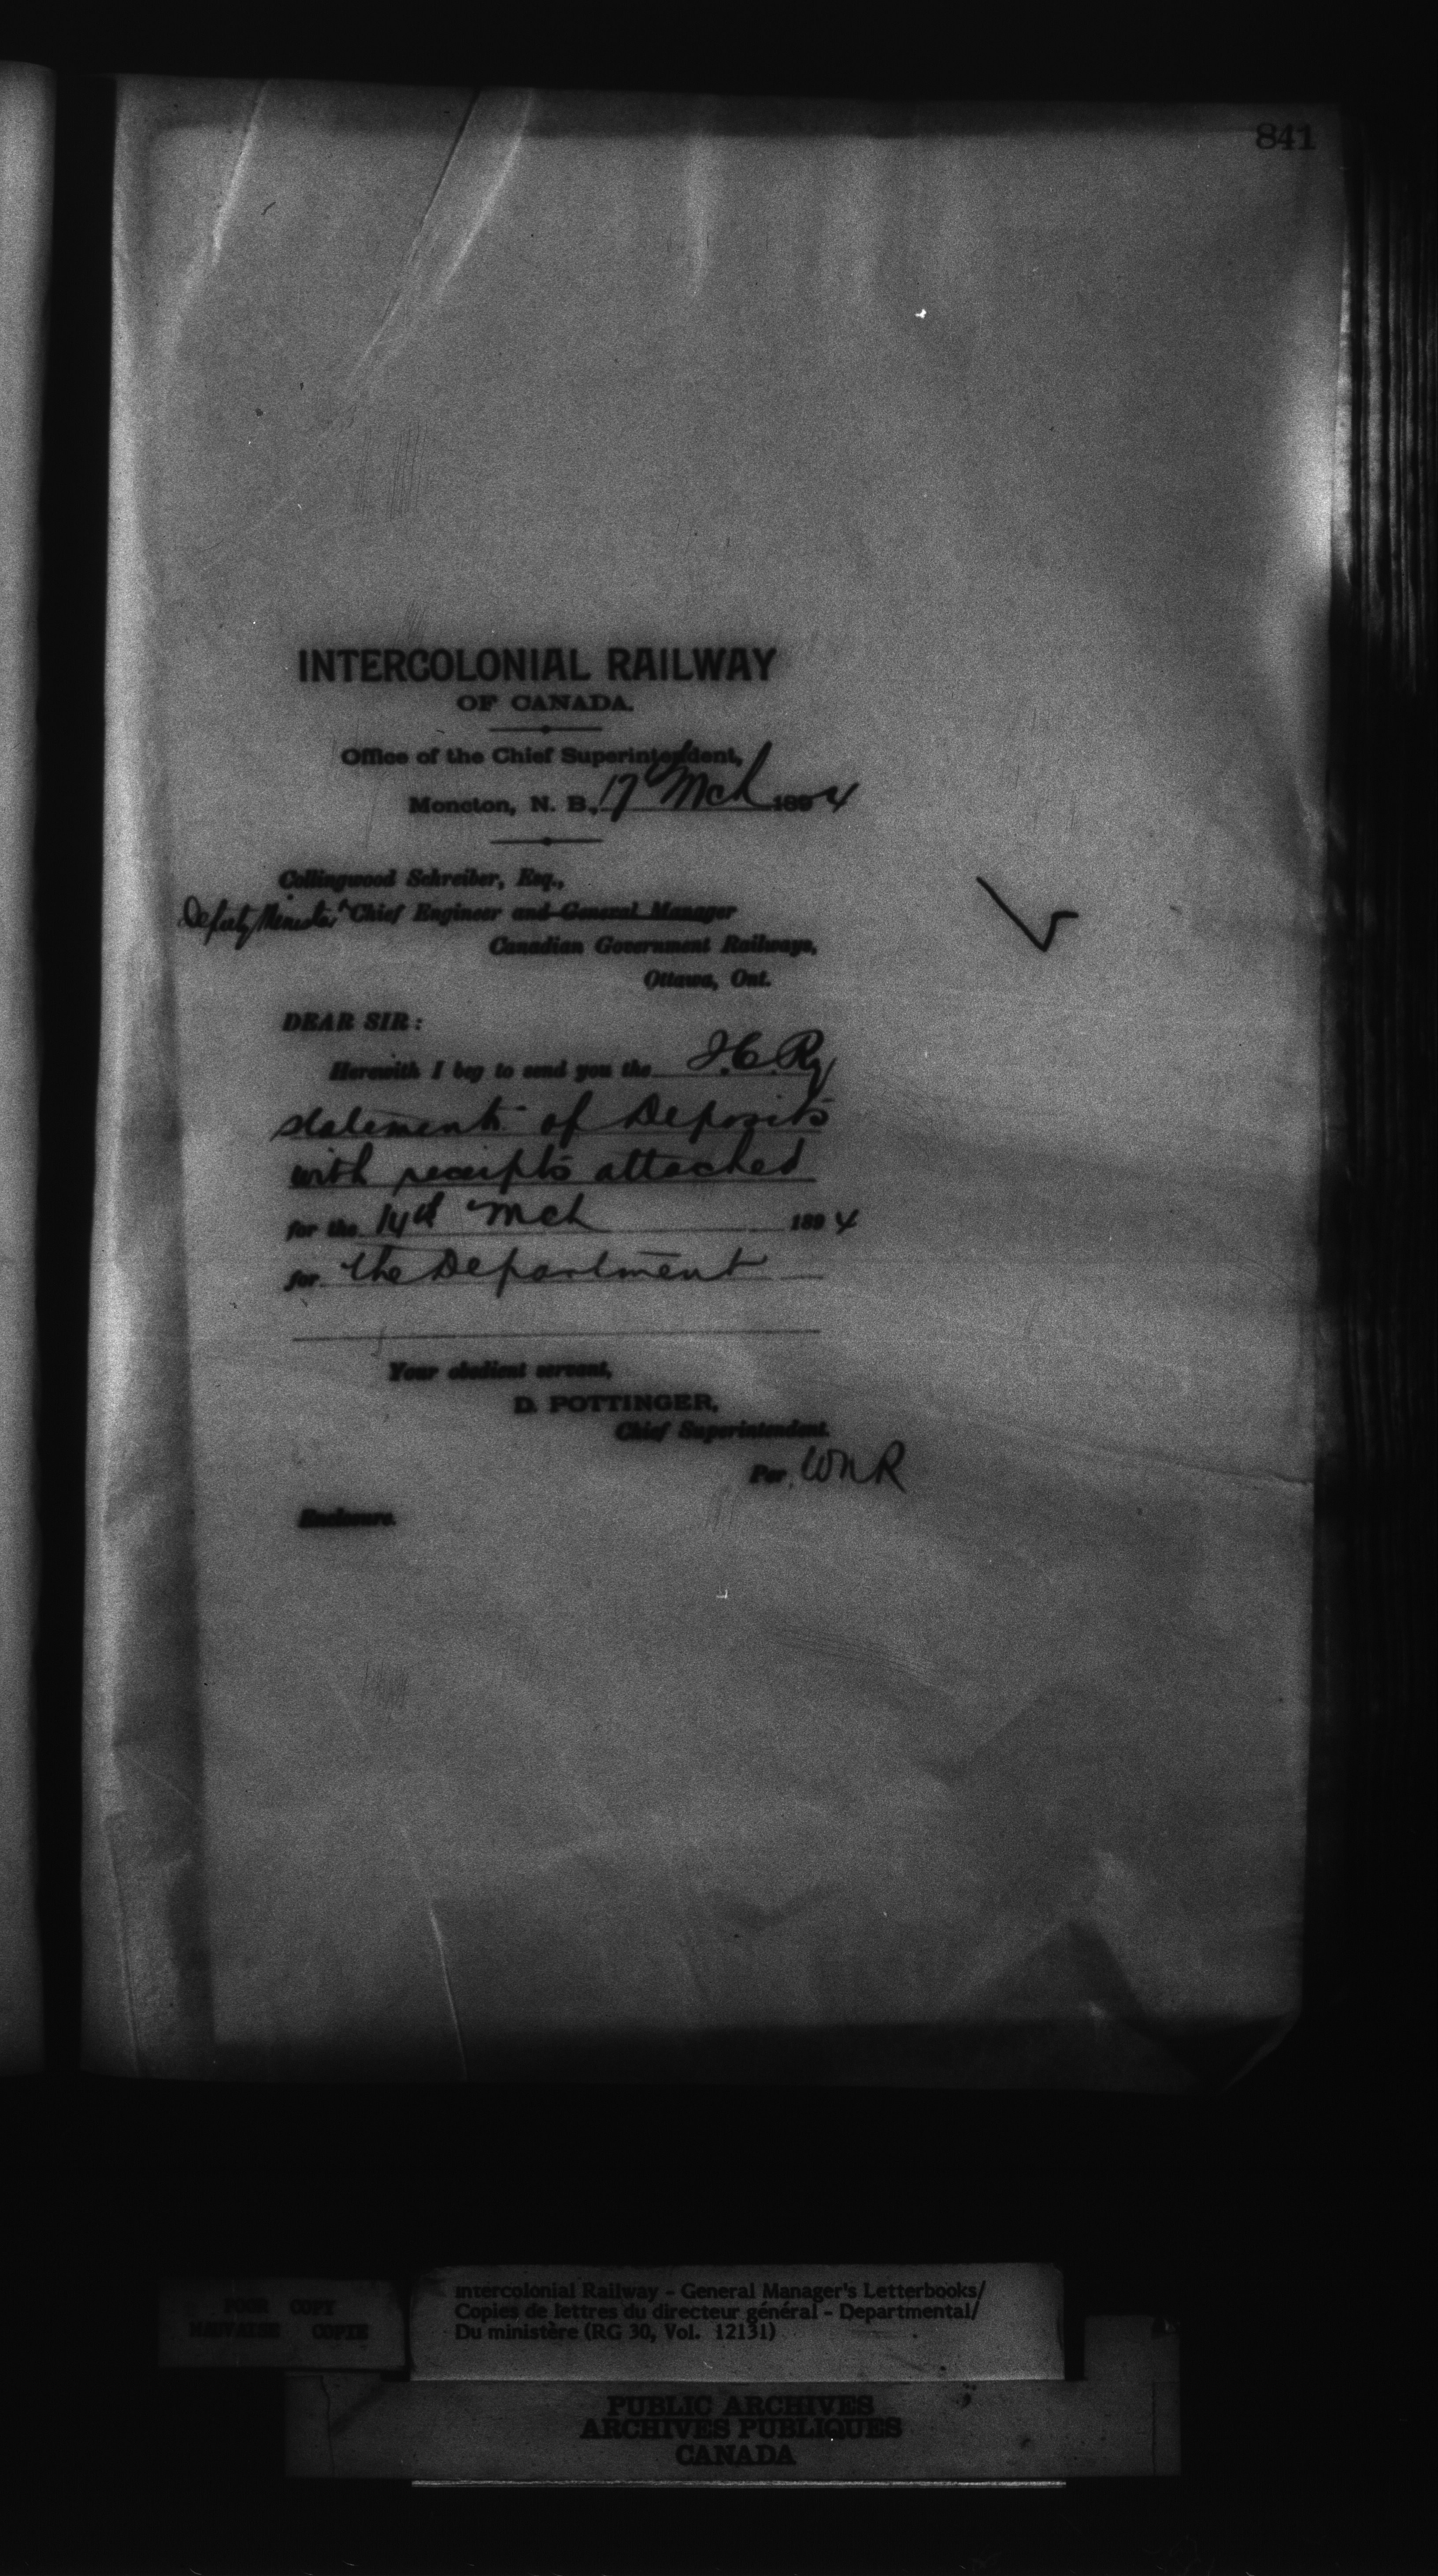 841
INTERCOLONIAL RAILWAY
OF CANADA.
Office of the Chief Superintendent,
Moncton, N. B., 17 Mch 1894
Collingwood Schreiber, Esq.,
Deputy Minister & Chief Engineer and General Manager
Canadian Government Railways,
Ottawa, Ont.
DEAR SIR:
Herewith I beg to send you the I.C.Ry
statements of Deposits
with receipts attached
for the 14th Mch 1894
for the Department
Your obedient servant,
D. POTTINGER,
Chief Superintendent.
Per WNR
Enclosure.
POOR COPY
MAUVAISE COPIE
Intercolonial Railway - General Manager's Letterbooks/
Copies de lettres du directeur général - Departmental/
Du ministère (RG 30, Vol. 12131)
PUBLIC ARCHIVES
ARCHIVES PUBLIQUES
CANADA